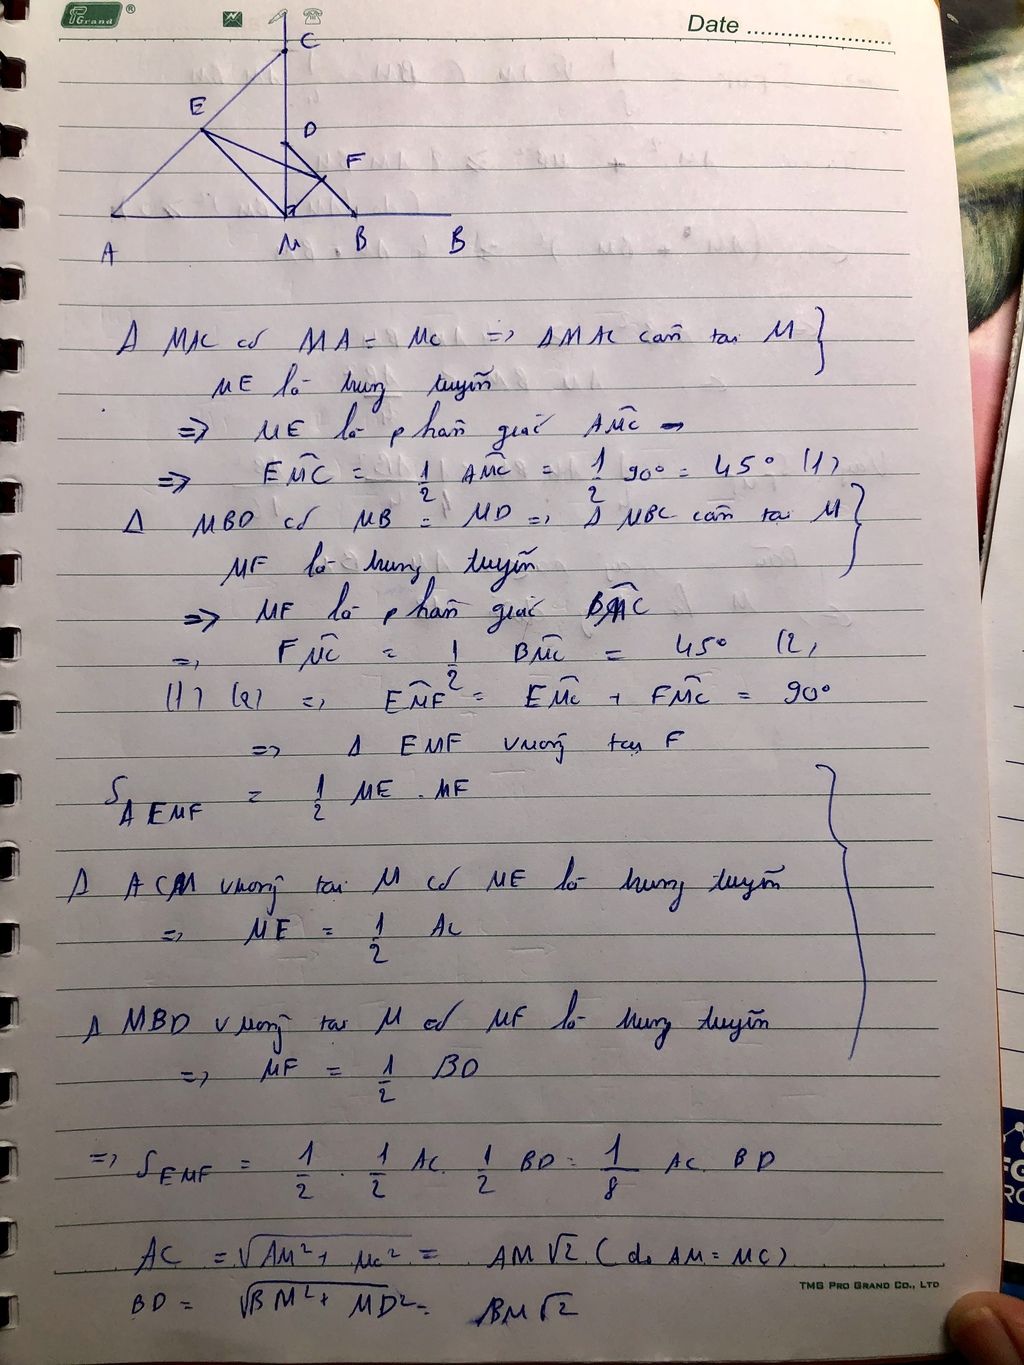 PGrand ®
Date
C
E
D
F
A M B B
Δ MAC có MA = MC => ΔMAC cân tại M
ME là trung tuyến
=> ME là phân giác AMC
=> EMC = 1/2 AMC = 1/2 90° = 45° (1)
Δ MBD có MB = MD => Δ MBC cân tại M
MF là trung tuyến
=> MF là phân giác BMC
=> FMC = 1/2 BMC = 45° (2)
(1) (2) => EMF = EMC + FMC = 90°
=> Δ EMF vuông tại F
S Δ EMF = 1/2 ME . MF
Δ ACM vuông tại M có ME là trung tuyến
=> ME = 1/2 AC
Δ MBD vuông tại M có MF là trung tuyến
=> MF = 1/2 BD
=> S EMF = 1/2 . 1/2 AC . 1/2 BD = 1/8 AC . BD
AC = √AM² + MC² = AM √2 (do AM = MC)
TMG PRO GRAND CO., LTD
BD = √BM² + MD² = BM √2